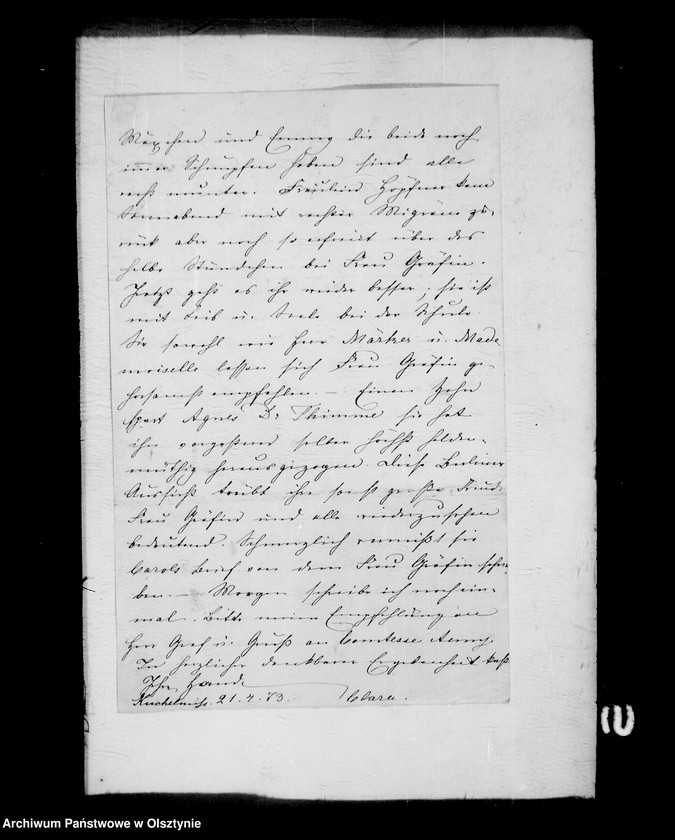 Mäxchen und Emmy die beide noch
immer Schnupfen haben sind alle
recht munter. Fräulein Höpfner kam
Sonnabend mit rechter Migräne zu-
rück aber noch so erfreut über das
halbe Stündchen bei Frau Gräfin.
Jetzt geht es ihr wieder besser; sie ist
mit Leib u. Seele bei der Schule.
Sie sowohl wie Herr Märker u. Made
moiselle lassen sich Frau Gräfin ge-
horsamst empfehlen. — Einen Zahn
spart Agnes Dr Thimme sie hat
ihn vorgestern selber höchst helden-
müthig herausgezogen. Diese Berliner
Aussicht trübt ihr sonst große Freude
Frau Gräfin und alle wiederzusehen
bedeutend. Schmerzlich vermißt sie
Carols Brief von dem Frau Gräfin schrie-
ben. — Morgen schreibe ich noch ein-
mal. Bitte meine Empfehlung an
Herr Graf u. Gruß an Comtesse Anny.
In herzlicher dankbarer Ergebenheit küßt
Ihre Hände
Kuchelmiß. 21.4.73. Clara.
Archiwum Państwowe w Olsztynie